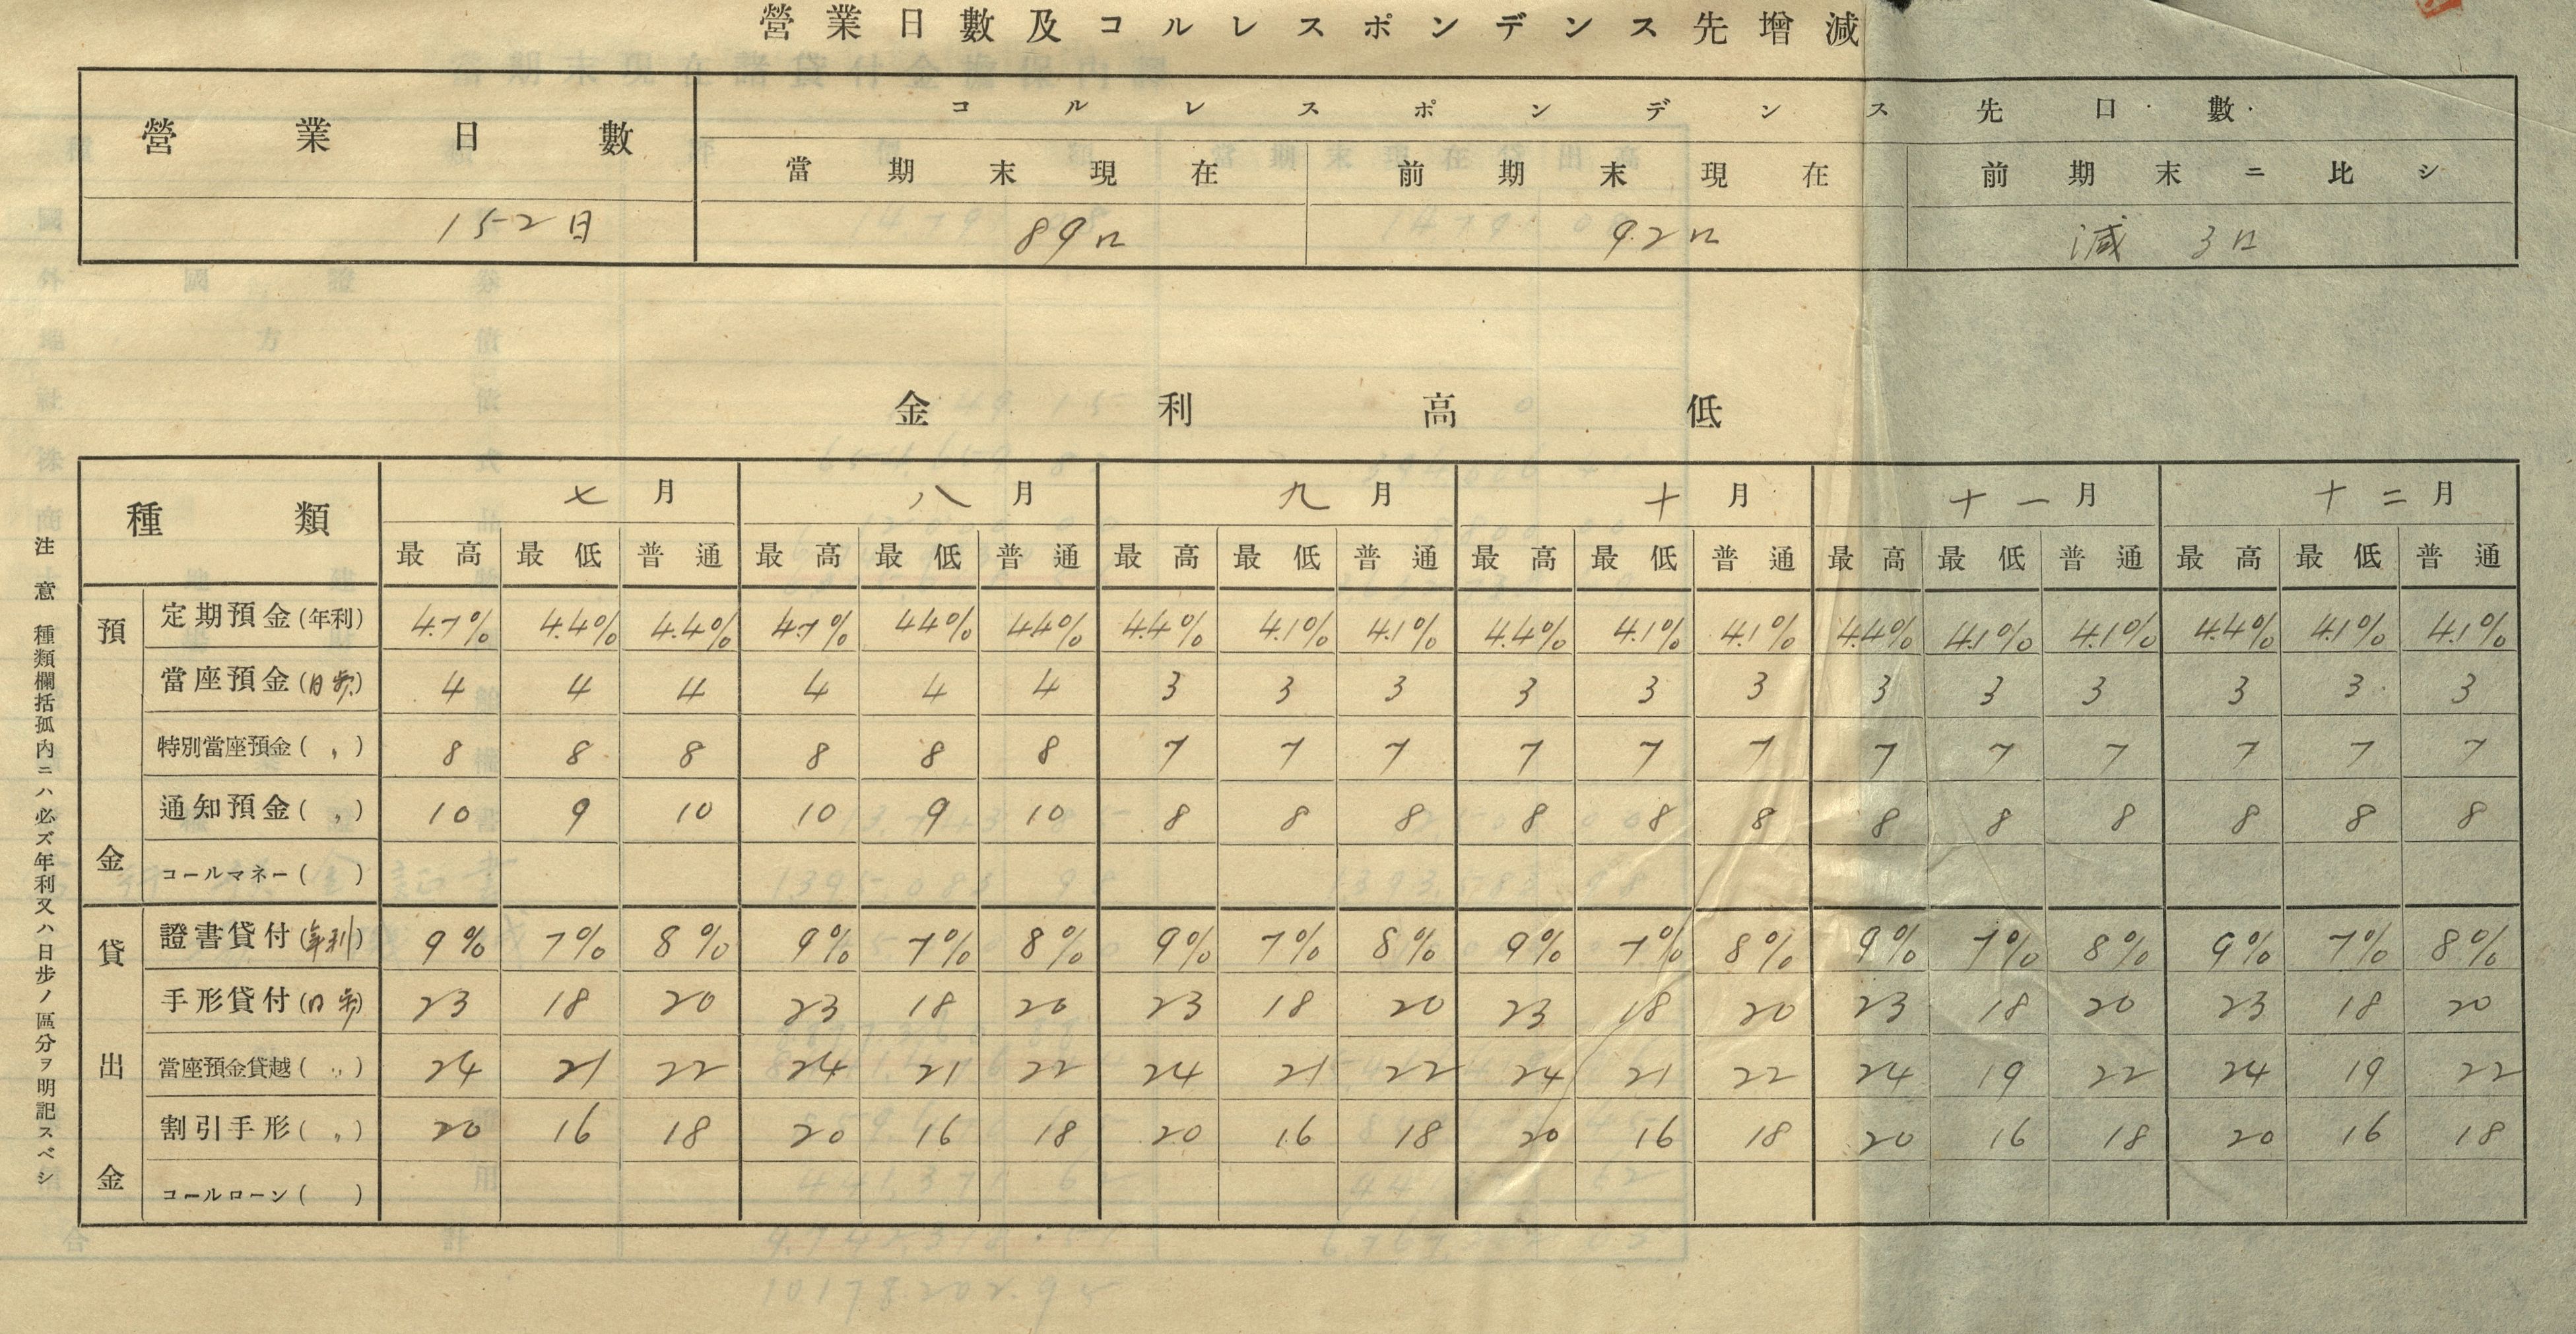 營業日數及コルレスポンデンス先增減
營業日數 コルレスポンデンス先口數
當期末現在 前期末現在 前期末ニ比シ
152日 89口 92口 減 3口
金利高低
種類 七月 八月 九月 十月 十一月 十二月
最高 最低 普通 最高 最低 普通 最高 最低 普通 最高 最低 普通 最高 最低 普通 最高 最低 普通
預金
定期預金(年利) 4.7% 4.4% 4.4% 4.7% 4.4% 4.4% 4.4% 4.1% 4.1% 4.4% 4.1% 4.1% 4.4% 4.1% 4.1% 4.4% 4.1% 4.1%
當座預金(日歩) 4 4 4 4 4 4 3 3 3 3 3 3 3 3 3 3 3 3
特別當座預金(〃) 8 8 8 8 8 8 7 7 7 7 7 7 7 7 7 7 7 7
通知預金(〃) 10 9 10 10 9 10 8 8 8 8 8 8 8 8 8 8 8 8
コールマネー( )
貸出金
證書貸付(年利) 9% 7% 8% 9% 7% 8% 9% 7% 8% 9% 7% 8% 9% 7% 8% 9% 7% 8%
手形貸付(日歩) 23 18 20 23 18 20 23 18 20 23 18 20 23 18 20 23 18 20
當座預金貸越(〃) 24 21 22 24 21 22 24 21 22 24 21 22 24 19 22 24 19 22
割引手形(〃) 20 16 18 20 16 18 20 16 18 20 16 18 20 16 18 20 16 18
コールローン( )
注意 種類欄括孤内ニハ必ズ年利又ハ日步ノ區分ヲ明記スベシ